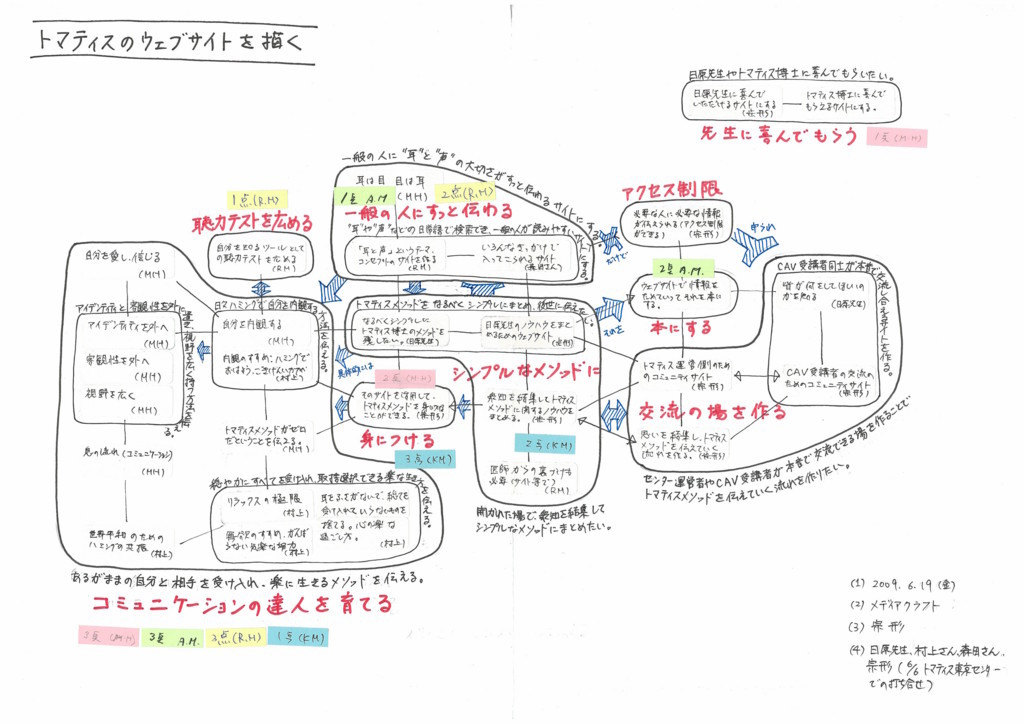 トマティスのウェブサイトを描く
日原先生やトマティス博士に喜んでもらいたい。
日原先生に喜んで
いただけるサイトにする
(宗形)
トマティス博士に喜んで
もらえるサイトにする。
先生に喜んでもらう
1点(M.H)
一般の人に"耳"と"声"の大切さがすっと伝わるサイトにする。
耳は目 目は耳
(MH)
1点 A.M
2点(R.M)
一般の人にすっと伝わる
"耳"や"声"などの日常語で検索でき、一般の人が読みやすいサイトにする。
「耳と声」というテーマ、
コンセプトのサイトを作る
(RM)
いろんなきっかけで
入ってこられるサイト
(森田さん)
1点(R.M)
聴力テストを広める
自分を知るツールとして
の聴力テストをためる
(RM)
アクセス制限
必要な人に必要な情報
が伝えられる(アクセス制限
ができる)
(宗形)
だけで
2点 A.M.
ウェブサイトで情報を
ためていってそれを本に
する。
本にする
それを
CAV受講者同士が本音で交流し合えるサイトを作る。
皆が何をしてほしいの
かを知る
(日原先生)
CAV受講者の交流の
ためのコミュニティサイト
(宗形)
トマティス運営側のため
のコミュニティサイト
(宗形)
交流の場を作る
思いを結集し、トマティス
メソッドを伝えていく
流れを作る。(宗形)
センター運営者やCAV受講者が本音で交流できる場を作ることで
トマティスメソッドを伝えていく流れを作りたい。
トマティスメソッドをなるべくシンプルにまとめ、後世に伝えたい。
なるべくシンプルに
トマティス博士のメソッドを
残したい。(日原先生)
日原先生のノウハウをまと
めるためのウェブサイト
(宗形)
シンプルなメソッドに
衆知を結集してトマティス
メソッドに関するノウハウを
まとめる。
(宗形)
2点(KM)
医師からの裏づけも
必要(サイト等で)
(RM)
開かれた場で、衆知を結集して
シンプルなメソッドにまとめたい。
具体的には
2点(M.H)
そのサイトを活用して、
トマティスメソッドを身につける
ことができる。(宗形)
身につける
3点(KM)
自分を愛し、信じる
(MH)
アイデンティティと客観性を外に置き、視野を広く持つ方法を伝える。
アイデンティティを外へ
(MH)
客観性を外へ
(MH)
視野を広く
(MH)
日々ハミングで自分を内観する方法を伝える。
自分を内観する
(MH)
内観のすすめ:ハミングで
おはよう、ごきげんいかがか
(村上)
トマティスメソッドがゼロ
だということを伝える。
(MH)
気の流れ(コミュニケーション)
(MH)
世界平和のための
ハミングの共振
(村上)
穏やかにすべてを受け入れ、取捨選択できる楽な生き方を伝える。
リラックスの極限
(村上)
耳をふさがないで、総てを
受け入れていらないものを
捨てる。心の楽な
過ごし方。
(村上)
あるがままの自分と相手を受け入れ、楽に生きるメソッドを伝える。
コミュニケーションの達人を育てる
3点(M.H)
3点 A.M.
3点(R.M)
1点(KM)
(1) 2009. 6. 19 (金)
(2) メディアクラフト
(3) 宗形
(4) 日原先生、村上さん、森田さん、
宗形(6/6 トマティス東京センター
での打ち合せ)